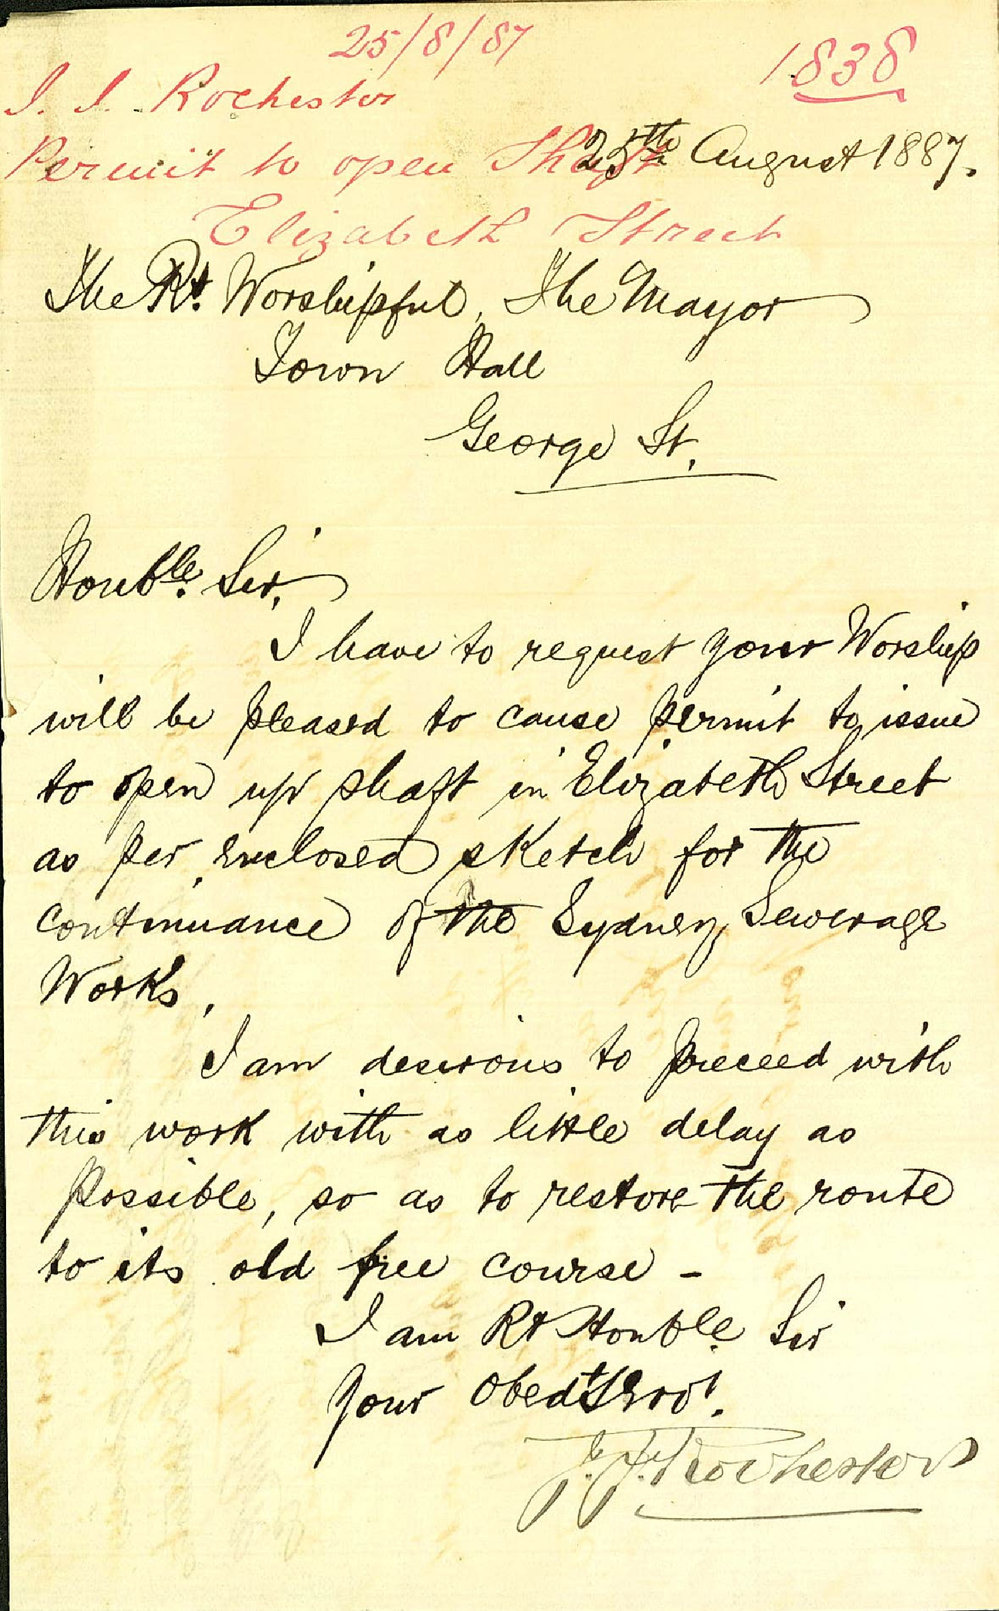 25/8/87
1838
J. J. Rochester
Permit to open Shaft
25th August 1887.
Elizabeth Street
The Rt. Worshipful, The Mayor
Town Hall
George St.
Honble. Sir,
I have to request your Worship
will be pleased to cause permit to issue
to open up shaft in Elizabeth Street
as per enclosed sketch for the
continuance of the Sydney Sewerage
Works,
I am desirous to proceed with
this work with as little delay as
possible, so as to restore the route
to its old free course -
I am Rt Honble. Sir
Your Obedt Servt.
J. J. Rochester